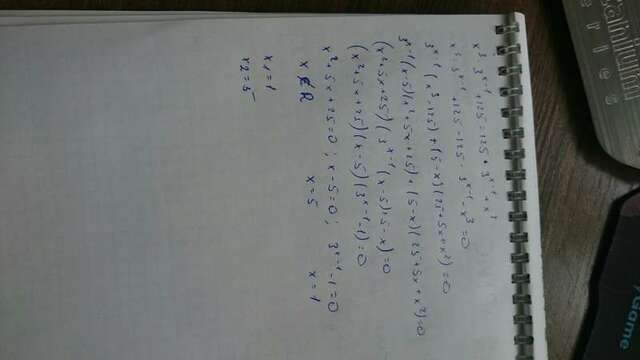 x³·3ˣ⁻¹+125=125·3ˣ⁻¹+x³
x³·3ˣ⁻¹+125-125·3ˣ⁻¹-x³=0
3ˣ⁻¹(x³-125)+(5-x)(25+5x+x²)=0
3ˣ⁻¹(x-5)(x²+5x+25)+(5-x)(25+5x+x²)=0
(x²+5x+25)(3ˣ⁻¹(x-5)+5-x)=0
(x²+5x+25)(x-5)(3ˣ⁻¹-1)=0
x²+5x+25=0; x-5=0; 3ˣ⁻¹-1=0
x∉R x=5 x=1
x1=1
x2=5
Game